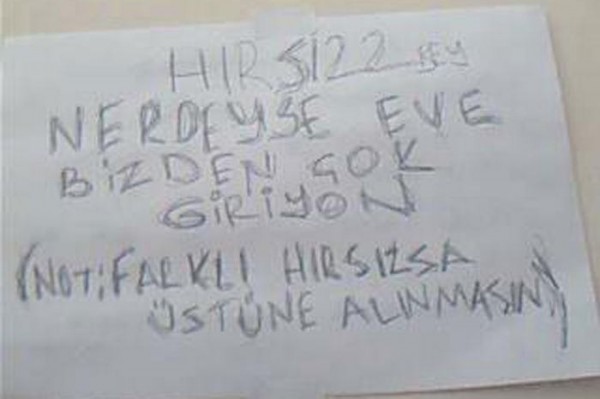 HIRSİZZ BEY
NERDEYSE EVE
BİZDEN ÇOK
GİRİYON
(NOT: FARKLI HIRSIZSA
ÜSTÜNE ALINMASIN)